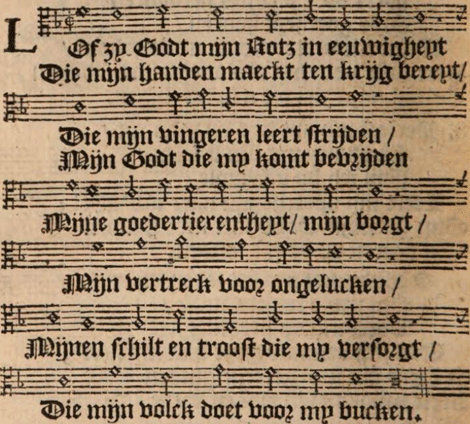 LOf zy Godt mijn Rotz in eeuwigheyt
Die mijn handen maeckt ten krijg bereyt/
Die mijn vingeren leert strijden /
Mijn Godt die my komt bevrijden
Mijne goedertierentheyt/ mijn borgt /
Mijn vertreck voor ongelucken /
Mijnen schilt en troost die my versorgt /
Die mijn volck doet voor my bucken.